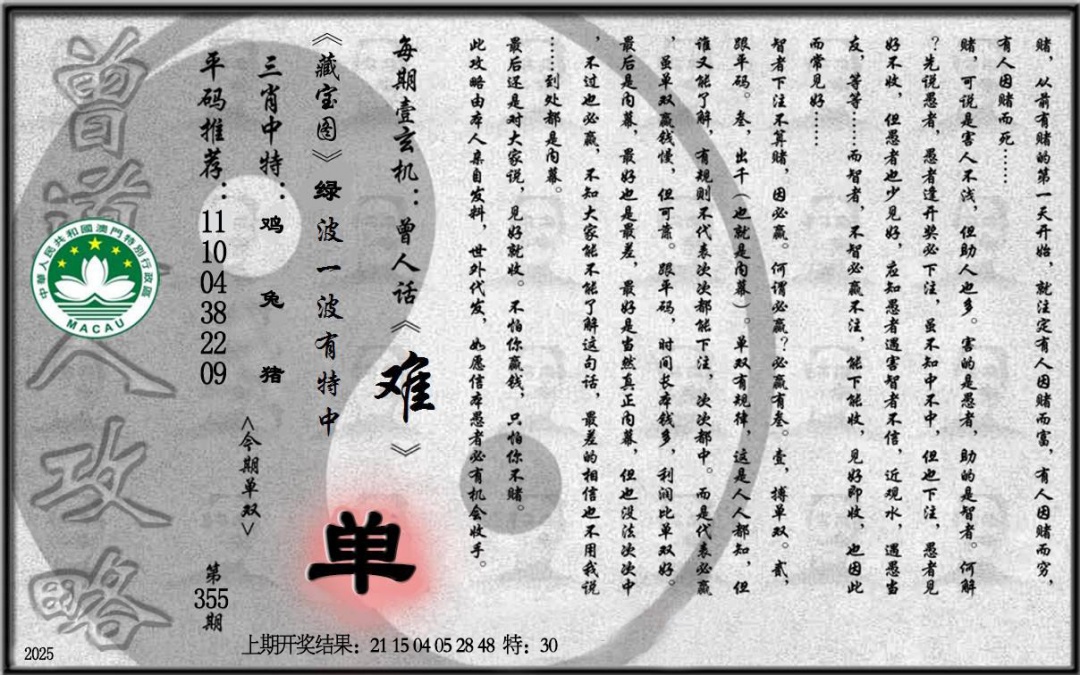 赌，从前有赌的第一天开始，就注定有人因赌而富，有人因赌而穷，
有人因赌而死……
赌，可说是害人不浅，但助人也多。害的是愚者，助的是智者。何解
？先说愚者，愚者逢开奖必下注，虽不知中不中，但也下注，愚者见
好不收，但愚者也少见好，应知愚者遇害智者不信，近观水，遇愚当
友，等等……而智者，不智必赢不注，能下能收，见好即收，也因此
而常见好……
智者下注不算赌，因必赢。何谓必赢？必赢有叁。壹，搏单双。贰，
跟单码。叁，出千（也就是内幕）。单双有规律，这是人人都知，但
谁又能了解，有规则不代表次次都能下注，次次都中。而是代表必赢
，虽单双赢钱慢，但可靠。跟单码，时间长本钱多，利润比单双好。
最后是内幕，最好也是最差，最好是当然真正内幕，但也没法次次中
，不过也必赢，不知大家能不能了解这句话，最差的相信也不用我说
……到处都是内幕。
最后还是对大家说，见好就收。不怕你赢钱，只怕你不赌。
此攻略由本人亲自发料，世外代发，如愿信本愚者必有机会收手。
每期壹玄机：曾人话《难》
《藏宝图》绿波一波有特中
单
三肖中特：鸡 兔 猪
<今期单双>
平码推荐：11 10 04 38 22 09
第355期
曾道人攻略
中華人民共和國澳門特別行政區
MACAU
2025
上期开奖结果：21 15 04 05 28 48 特：30